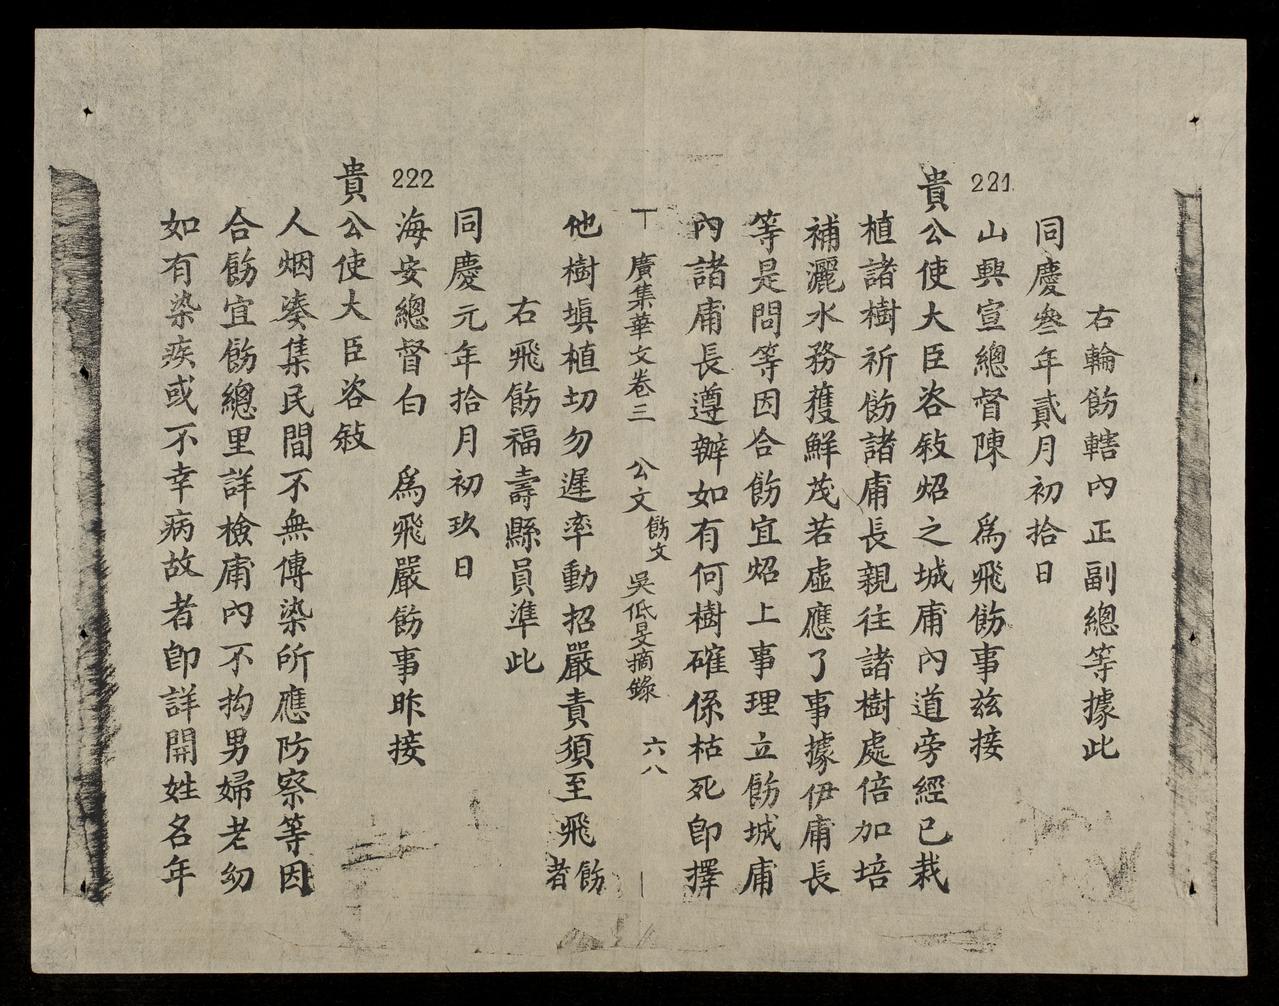 右輪飭轄內正副總等據此
同慶叁年貳月初拾日
221
山興宣總督陳 爲飛飭事茲接
貴公使大臣咨敍炤之城庯內道旁經已栽
植諸樹祈飭諸庯長親往諸樹處倍加培
補灑水務獲鮮茂若虛應了事據伊庯長
等是問等因合飭宜炤上事理立飭城庯
內諸庯長遵辦如有何樹確係枯死卽擇
丅 廣集華文卷三 公文 飭文 吳低旻摘錄 六八
他樹塡植切勿遲率動招嚴責須至飛飭者
右飛飭福壽縣員準此
同慶元年拾月初玖日
222
海安總督白 爲飛嚴飭事昨接
貴公使大臣咨敍
人烟湊集民間不無傳染所應防察等因
合飭宜飭總里詳檢庯內不拘男婦老幼
如有染疾或不幸病故者卽詳開姓名年